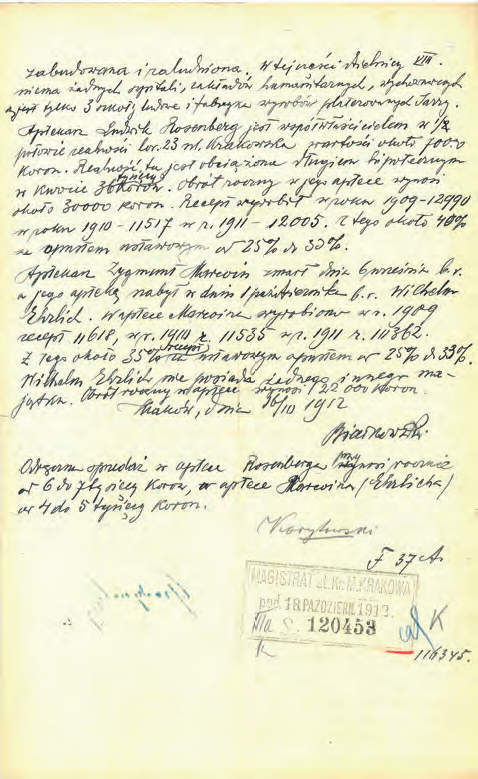 zabudowana i zaludniona. W tej części dzielnicy VIII.
niema żadnych szpitali, zakładów humanitarnych, wychowawczych
a jest tylko 3 szkoły ludowe i fabryka wyrobów platerowanych Jarry.
Aptekarz Ludwik Rosenberg jest współwłaścicielem w 1/2
połowie realności lor. 23 ul. Krakowska wartości około 70000
koron. Realność ta jest obciążona długiem hipotecznym
w kwocie 36 tysięcy koron. Obrót roczny w jego aptece wynosi
około 30000 koron. Recept wyrobił w roku 1909 - 12990
w roku 1910 - 11517 w r. 1911 - 12005. z tego około 40%
za opustem ustawowym od 25% do 33%.
Aptekarz Zygmunt Marcoin zmarł dnia 6 września b.r.
a jego aptekę nabył w dniu 1 października b.r. Wilhelm
Ehrlich. W aptece Marcoina wyrobiono w r. 1909
recept 11618, w r. 1910 r. 11535 w r. 1911 r. 10362.
Z tego około 35% recept za ustawowym opustem od 25% do 33%.
Wilhelm Ehrlich nie posiada żadnego innego ma-
jątku. Obrót roczny w aptece wynosi 22000 koron.
Kraków, dnia 16/10 1912
Białkowski
Odręczna sprzedaż w aptece Rosenberga wynosi rocznie
od 6 do 7 tysięcy koron, w aptece Marcoina (Ehrlicha)
od 4 do 5 tysięcy koron.
F 37 A
MAGISTRAT st. Kr. M. KRAKOWA
pod. 18. PAŹDZIERN. 1912.
IIIa S. 120453
K
116345.